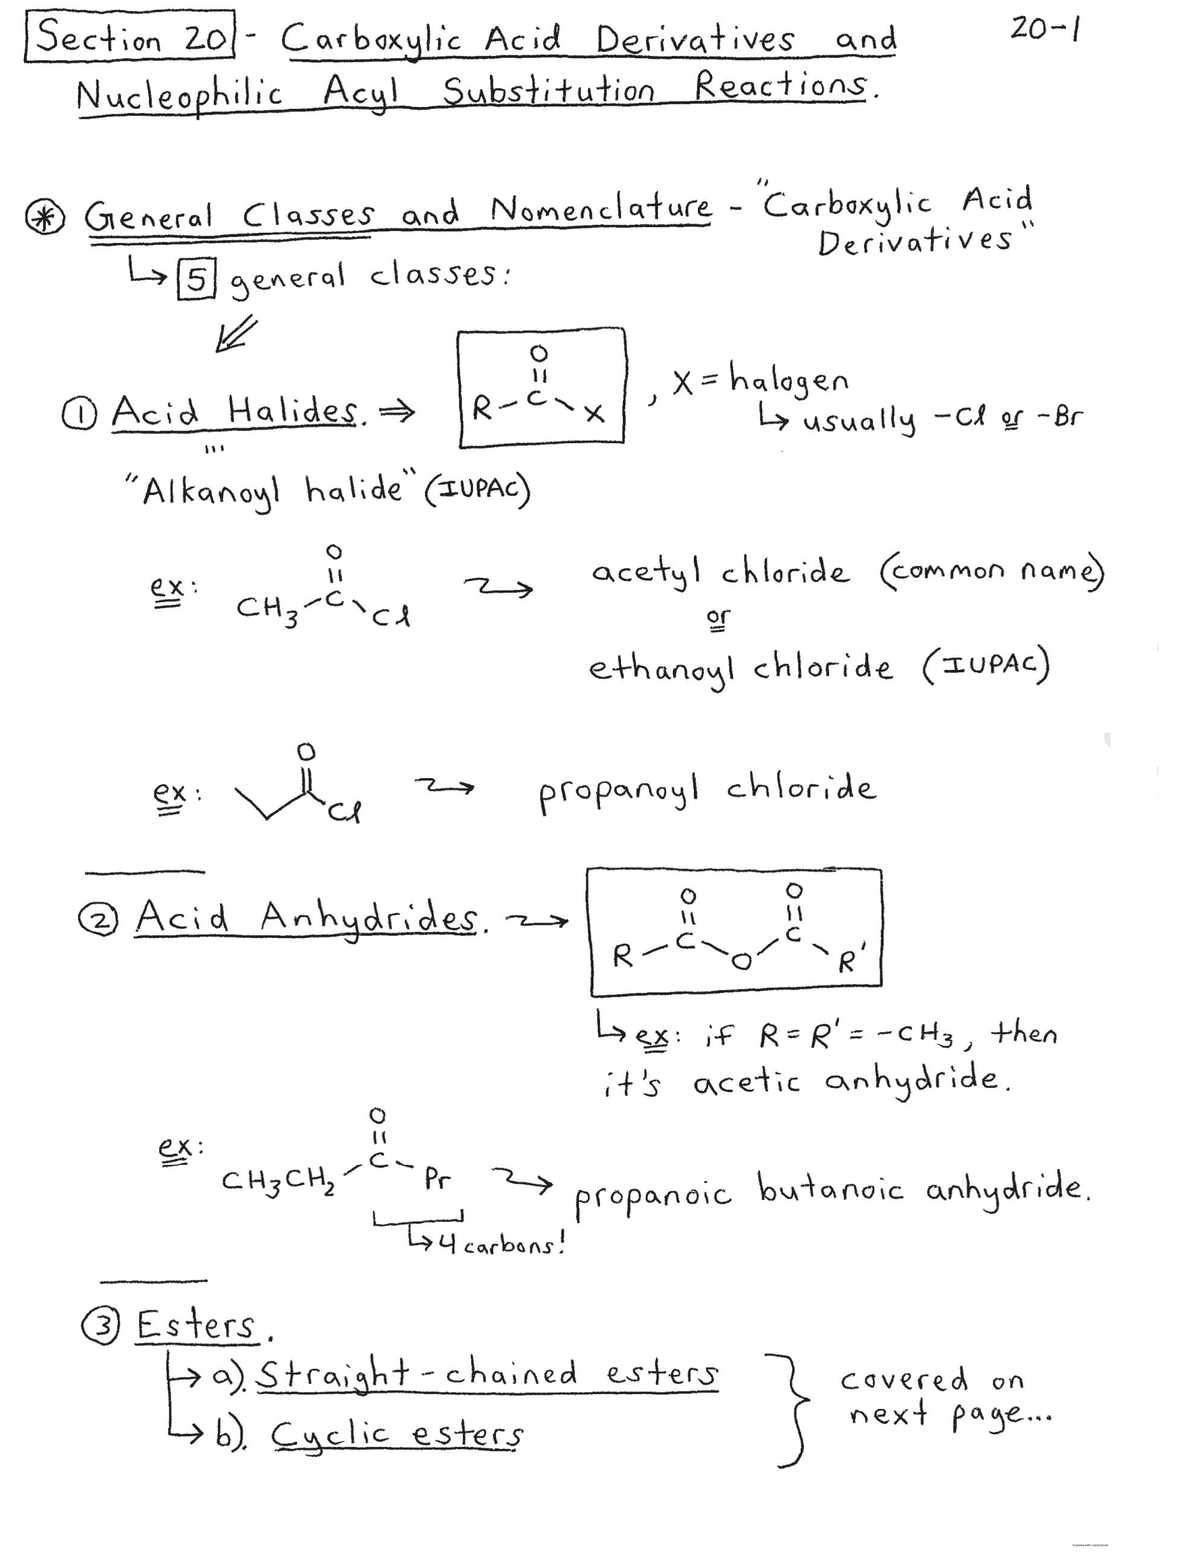 Section 20 - Carboxylic Acid Derivatives and
20-1
Nucleophilic Acyl Substitution Reactions.
* General Classes and Nomenclature - "Carboxylic Acid
Derivatives"
↳ 5 general classes:
① Acid Halides. ⇒
O
||
R-C-X
, X = halogen
↳ usually -Cl or -Br
"Alkanoyl halide" (IUPAC)
ex:
O
||
CH3-C-Cl
acetyl chloride (common name)
or
ethanoyl chloride (IUPAC)
ex:
O
Cl
propanoyl chloride
② Acid Anhydrides. →
O O
|| ||
R-C-O-C-R'
↳ ex: if R = R' = -CH3, then
it's acetic anhydride.
ex:
O
||
CH3CH2-C-Pr
propanoic butanoic anhydride.
↳ 4 carbons!
③ Esters.
↳ a). Straight-chained esters
↳ b). Cyclic esters
covered on
next page...